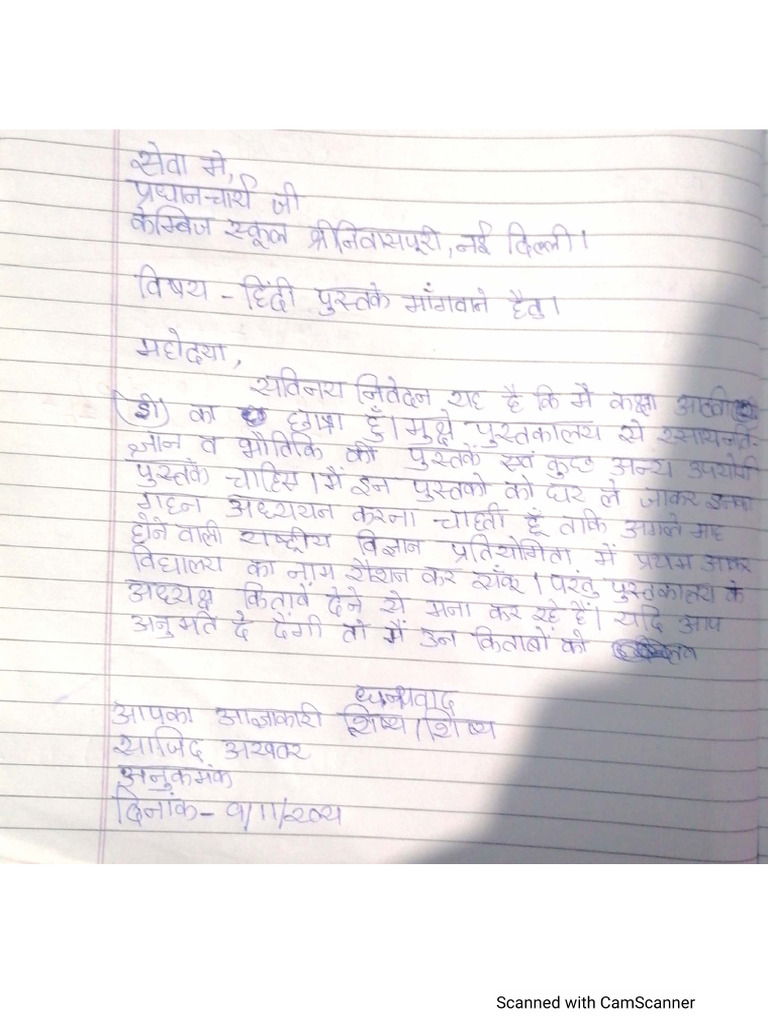 सेवा मे,
प्रधानचार्य जी
केम्बिज स्कूल श्रीनिवासपूरी, नई दिल्ली।
विषय - हिंदी पुस्तके माँगवाने हैतु।
महोदया,
सविनय निवेदन यह है कि मै कक्षा आठवी
डी) का छात्रा हूँ। मुझे पुस्तकालय से रसायनवि-
ज्ञान व भौतिकि की पुस्तकें एवं कुछ अन्य उपयोगी
पुस्तकें चाहिए। मैं इन पुस्तको को घर ले जाकर इनका
गहन अध्ययन करना चाहती हूँ ताकि अगले माह
होने वाली राष्ट्रीय विज्ञान प्रतियोगिता में प्रथम आकर
विद्यालय का नाम रौशन कर सकूँ। परंतु पुस्तकालय के
अध्यक्ष किताबें देने से मना कर रहे हैं। यदि आप
अनुमति दे देंगी तो मैं उन किताबों को
धन्यवाद
आपका आज्ञाकारी शिष्य/शिष्य
साजिद अखतर
अनुकमंक
दिनांक-
Scanned with CamScanner